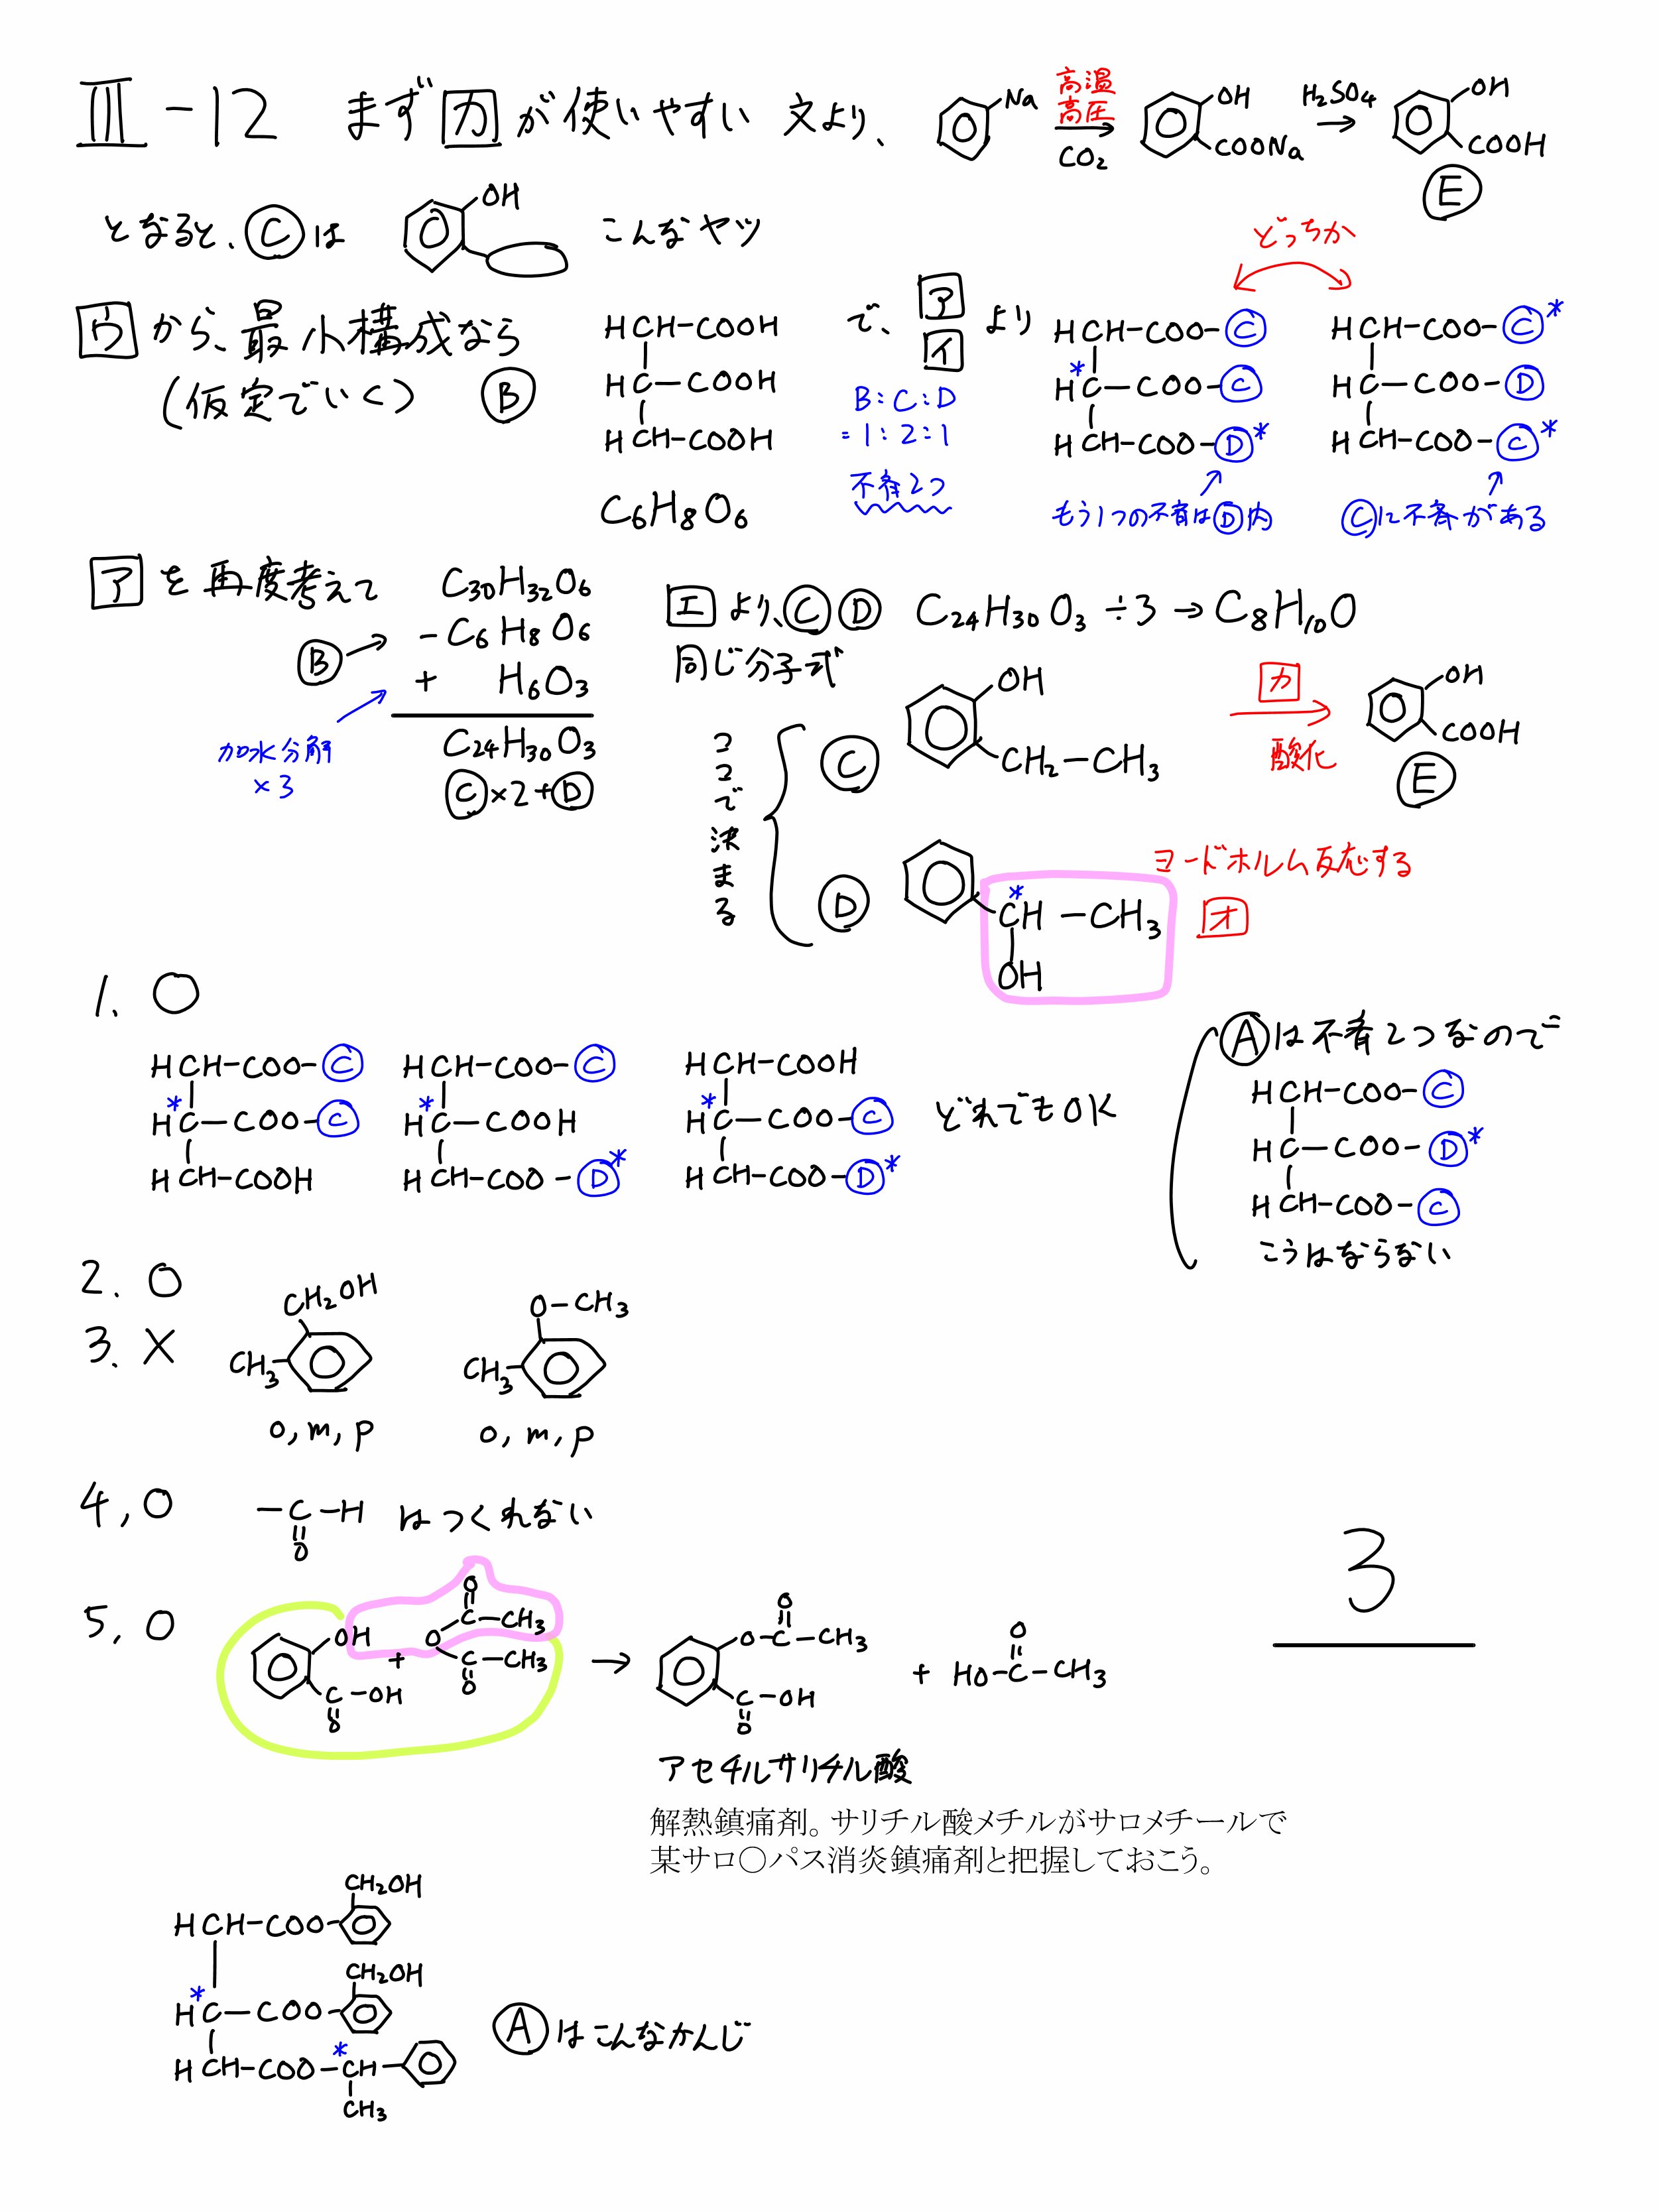 Ⅲ-12 まずカが使いやすい 文より、
Na 高温 高圧 CO2 OH COONa H2SO4 OH COOH E
となると、Cは OH こんなヤツ
どっちか
ウから、最小構成なら
(仮定でいく) B
HCH-COOH
HC-COOH
HCH-COOH
C6H8O6
で、アイより
B:C:D
=1:2:1
不斉2つ
HCH-COO-C
*
HC-COO-C
HCH-COO-D*
もう1つの不斉はD内
HCH-COO-C*
HC-COO-D
HCH-COO-C*
Cに不斉がある
アを再度考えて
C30H32O6
B → -C6H8O6
+ H6O3
加水分解
×3
C24H30O3
C×2+D
エより、C D C24H30O3÷3→C8H10O
同じ分子式
ココで決まる
C OH CH2-CH3
カ
酸化
OH COOH E
D *
CH-CH3
OH
ヨードホルム反応する
オ
1. ○
HCH-COO-C
*
HC-COO-C
HCH-COOH
HCH-COO-C
*
HC-COOH
HCH-COO-D*
HCH-COOH
*
HC-COO-C
HCH-COO-D*
どれでもOK
Aは不斉2つなので
HCH-COO-C
HC-COO-D*
HCH-COO-C
こうはならない
2. ○
3. ×
CH2OH
CH3
o, m, p
O-CH3
CH3
o, m, p
4, ○ -C-H はつくれない
O
5, ○
OH + O C-CH3 O C-CH3 O C-OH O
→ O-C-CH3 O C-OH O + HO-C-CH3 O
アセチルサリチル酸
解熱鎮痛剤。サリチル酸メチルがサロメチールで
某サロ〇パス消炎鎮痛剤と把握しておこう。
3
CH2OH
HCH-COO-
CH2OH
*
HC-COO-
*
HCH-COO-CH-
CH3
Aはこんなかんじ